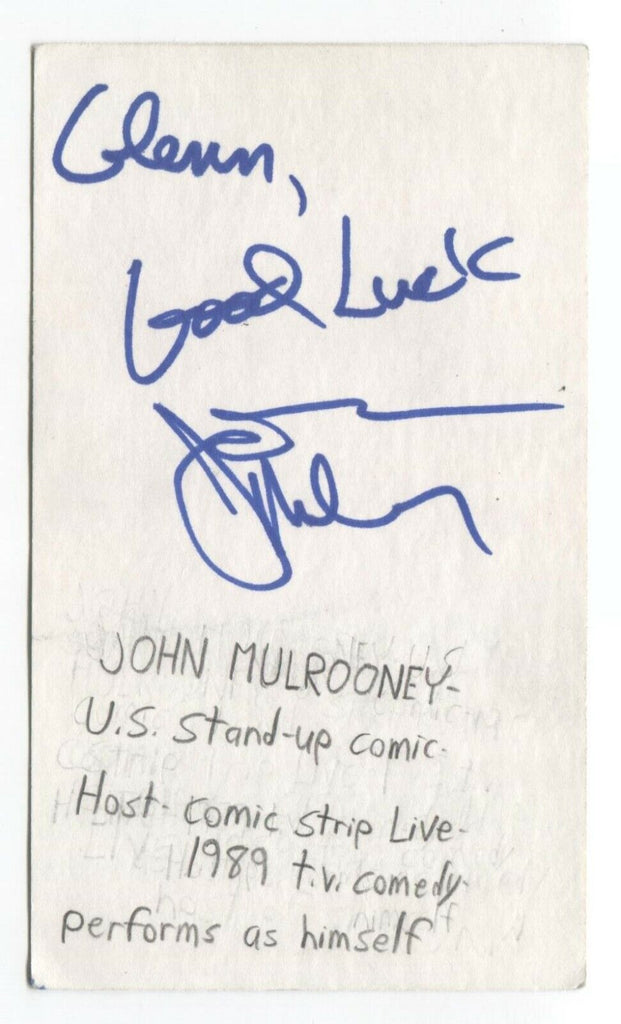 Glenn,
Good Luck
JOHN MULROONEY-
U.S. stand-up comic.
Host- comic strip Live-
1989 t.v. comedy.
performs as himself